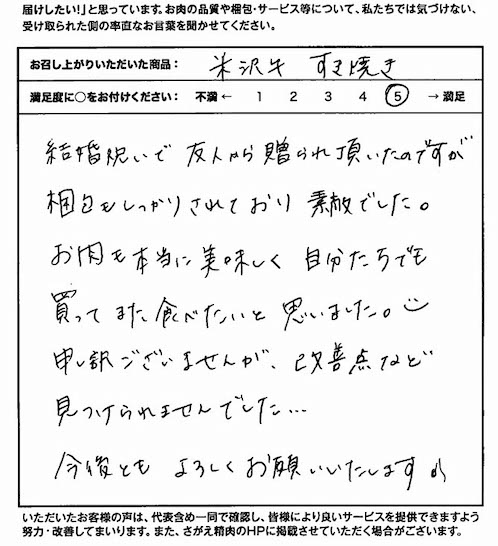 届けしたい!」と思っています。お肉の品質や梱包・サービス等について、私たちでは気づけない、
受け取られた側の率直なお言葉を聞かせてください。
お召し上がりいただいた商品: 米沢牛 すき焼き
満足度に○をお付けください: 不満 ← 1 2 3 4 5 → 満足
結婚祝いで 友人から 贈られ 頂いたのですが
梱包もしっかりされており 素敵でした。
お肉も本当に美味しく 自分たちでも
買って また 食べたいと 思いました。
申し訳ございませんが、改善点など
見つけられませんでした…
今後とも よろしくお願いいたします
いただいたお客様の声は、代表含め一同で確認し、皆様により良いサービスを提供できますよう
努力・改善してまいります。また、さがえ精肉のHPに掲載させていただく場合がございます。